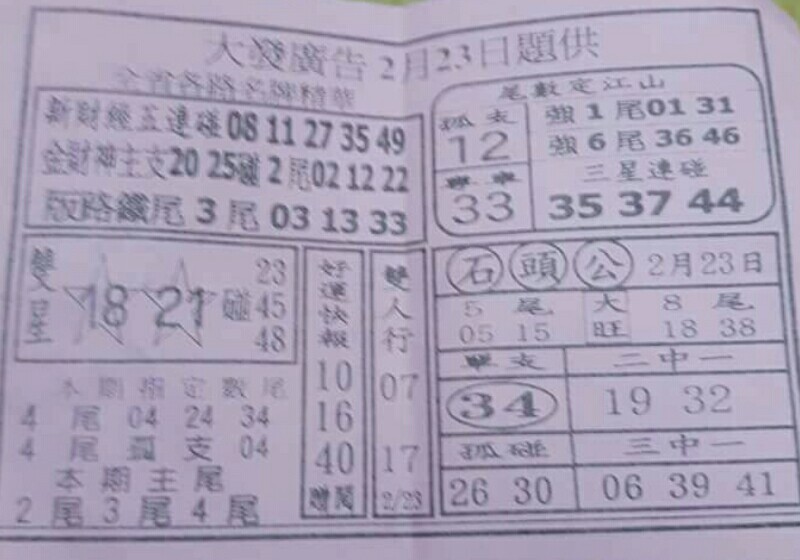 大發廣告2月23日題供
全省各路名牌精華
新財經五連碰08 11 27 35 49
金財神主支20 25碰2尾02 12 22
版路鐵尾3尾03 13 33
尾數定江山
孤支
12
單車
33
強1尾01 31
強6尾36 46
三星連碰
35 37 44
雙星
18 21碰
23
45
48
本期指定數尾
4尾04 24 34
4尾孤支04
本期主尾
2尾3尾4尾
好運快報
10
16
40
贈閱
雙人行
07
17
2/23
石頭公2月23日
5尾
05 15
大旺
8尾
18 38
單支
34
二中一
19 32
孤碰
26 30
三中一
06 39 41